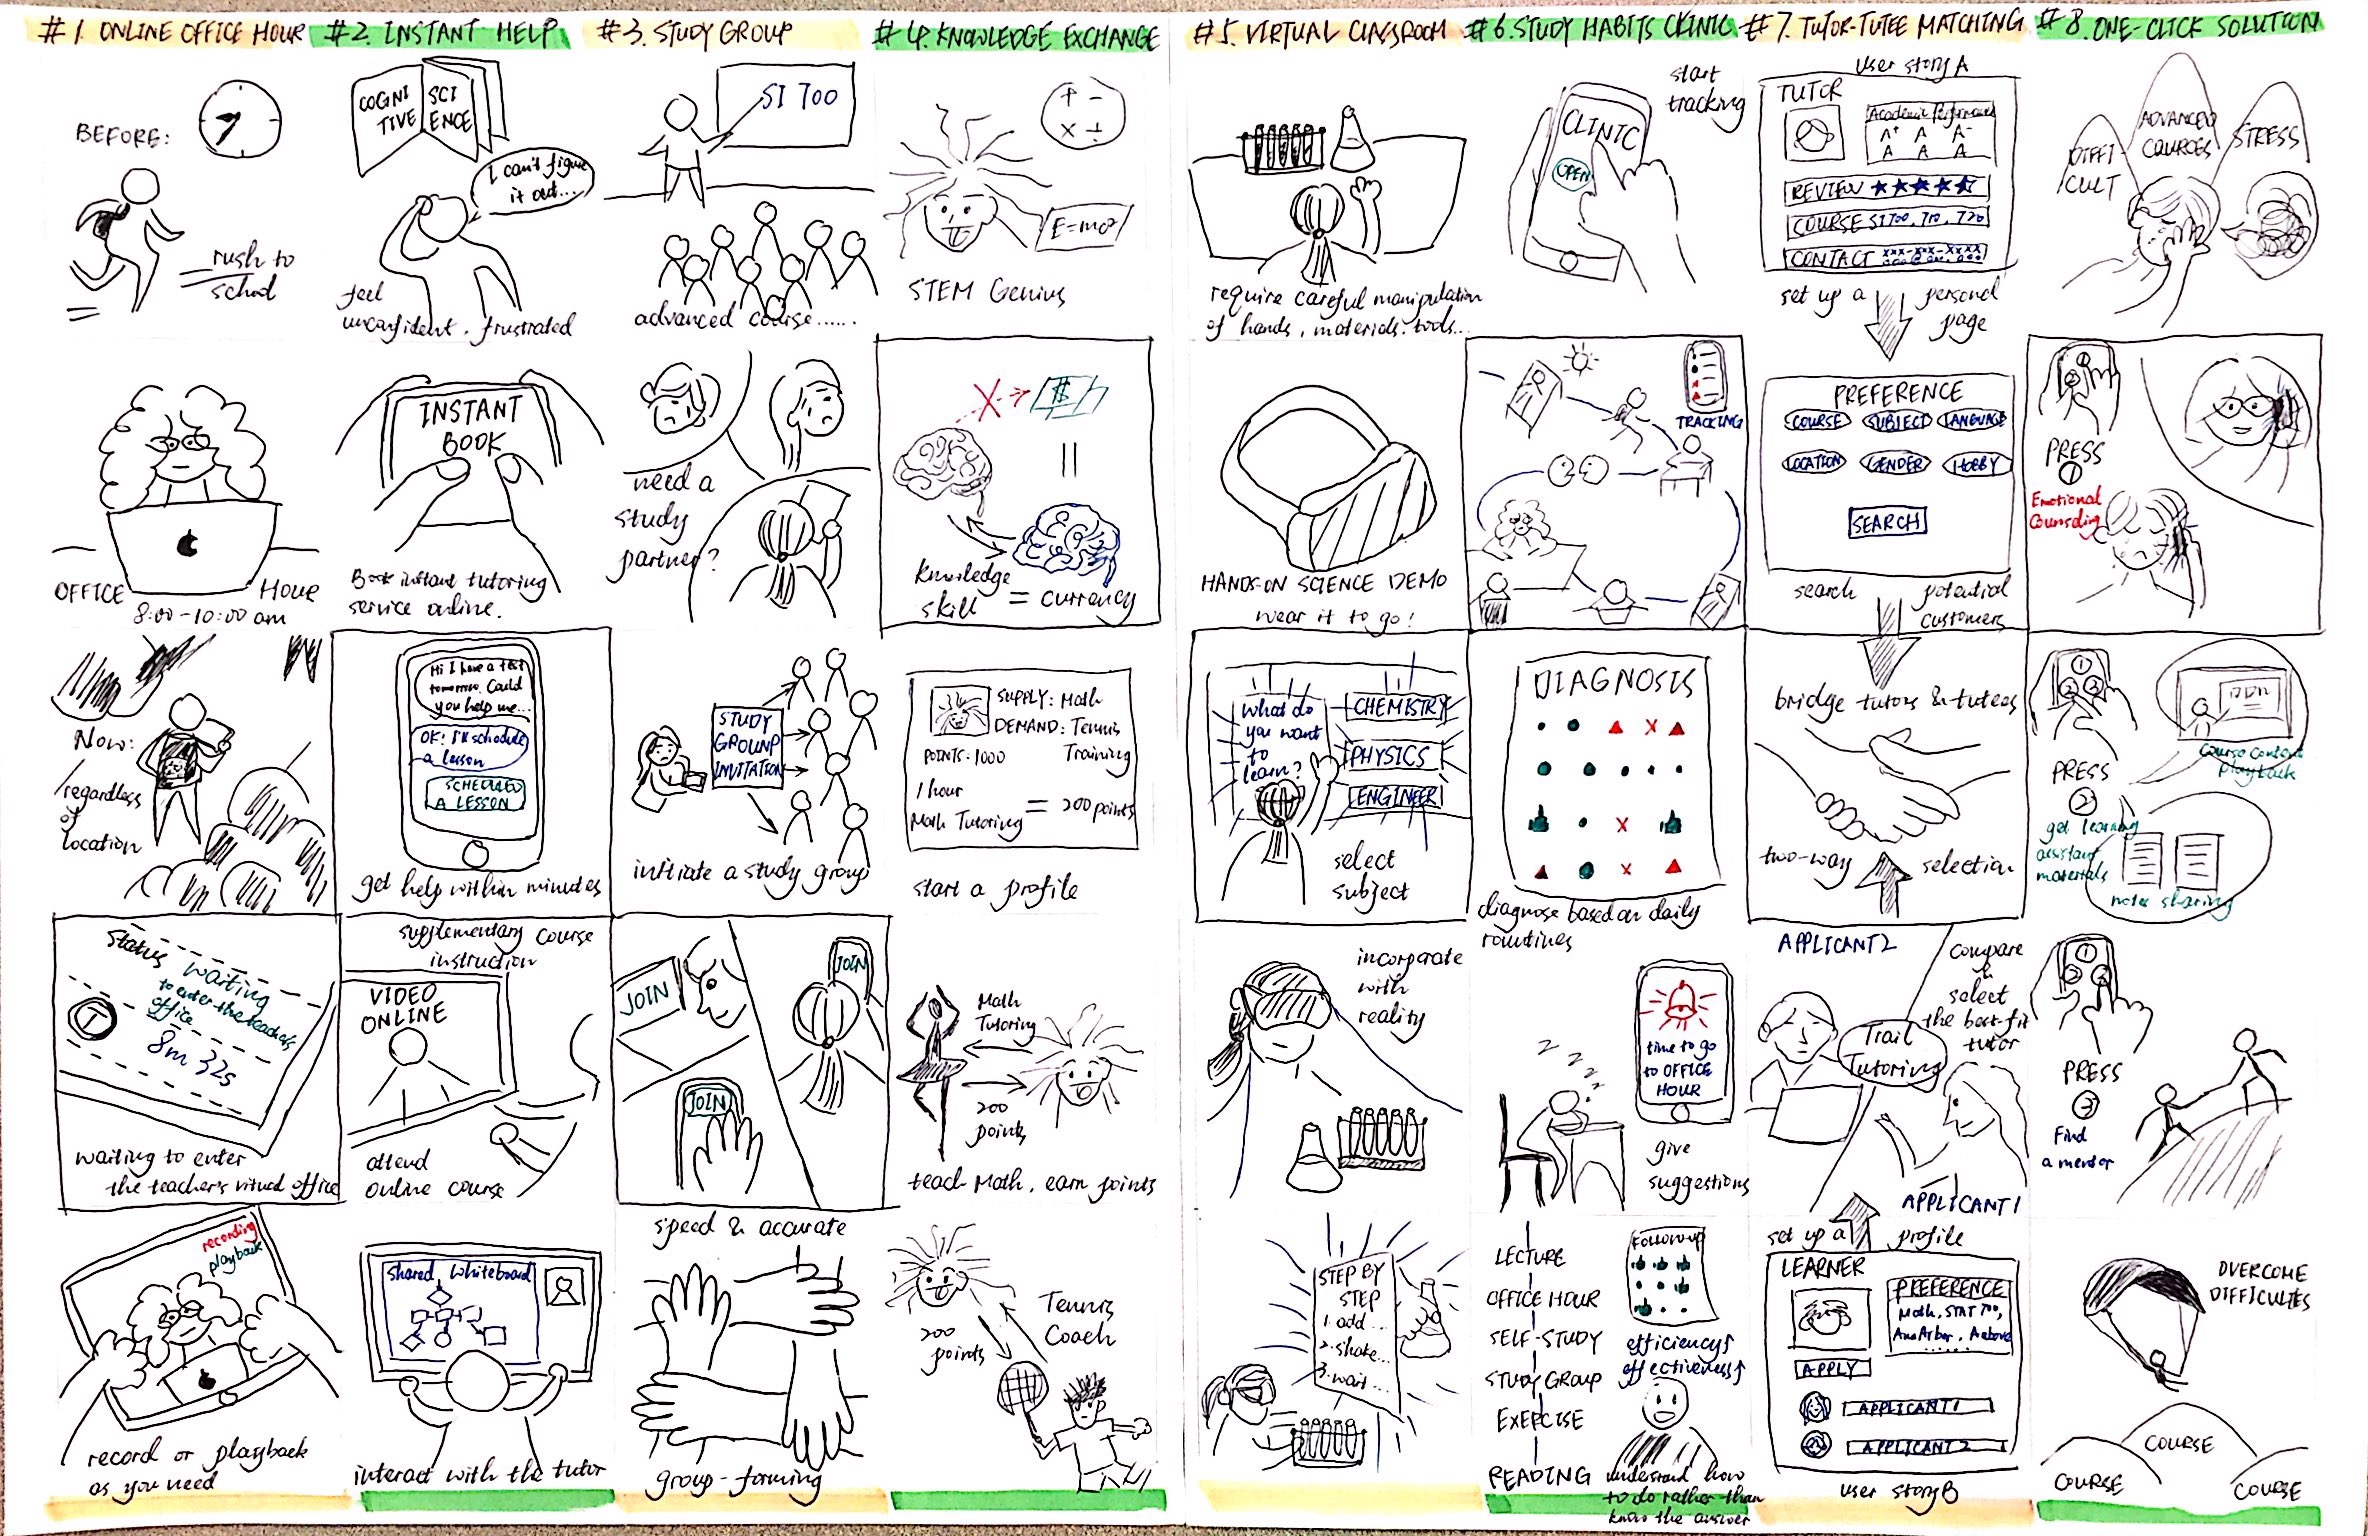 #1. ONLINE OFFICE HOUR
BEFORE:
rush to
school
OFFICE HOUR
8:00-10:00 am
Now:
regardless
of
location
Status
waiting
to enter the teacher's
office
8m 32s
waiting to enter
the teacher's virtual office
recording
playback
record or playback
as you need
#2. INSTANT HELP
COGNI
TIVE
SCI
ENCE
I can't figure
it out...
feel
unconfident. frustrated
INSTANT
BOOK
Book instant tutoring
service online.
Hi I have a test
tomorrow. Could
you help me...
OK! I'll schedule
a lesson
SCHEDULED
A LESSON
get help within minutes
supplementary course
instruction
VIDEO
ONLINE
attend
online course
Shared Whiteboard
interact with the tutor
#3. STUDY GROUP
SI 700
advanced course......
need a
study
partner?
STUDY
GROUNP
INVITATION
initiate a study group
JOIN
JOIN
JOIN
speed & accurate
group-forming
#4. KNOWLEDGE EXCHANGE
+ -
× ÷
E=mc²
STEM Genius
X
$
knowledge
skill = currency
SUPPLY: Math
DEMAND: Tennis
Training
POINTS: 1000
1 hour
Math Tutoring = 200 points
start a profile
Math
Tutoring
200
points
teach Math, earn points
200
points
Tennis
Coach
#5. VIRTUAL CLASSROOM
require careful manipulation
of hands, materials. tools...
HANDS-ON SCIENCE DEMO
wear it to go!
What do
you want
to
learn?
CHEMISTRY
PHYSICS
ENGINEER
select
subject
incorporate
with
reality
STEP BY
STEP
1. add...
2. shake...
3. wait...
#6. STUDY HABITS CLINIC
start
tracking
CLINIC
OPEN
TRACKING
DIAGNOSIS
diagnose based on daily
routines
z z z z z
time to go
to OFFICE
HOUR
give
suggestions
LECTURE
OFFICE HOUR
SELF-STUDY
STUDY GROUP
EXERCISE
READING
Follow-up
efficiency↑
effectiveness↑
understand how
to do rather than
know the answer
#7. TUTOR-TUTEE MATCHING
user story A
TUTOR
Academic Performance
A+ A A-
A A A
REVIEW ★★★★★
COURSE SI 700, 710, 720
CONTACT xxx-xxx-xxxx
set up a personal
page
PREFERENCE
COURSE SUBJECT LANGUAGE
LOCATION GENDER HOBBY
SEARCH
search potential
customers
bridge tutors & tutees
two-way selection
APPLICANT2
compare
&
select
the best-fit
tutor
Trail
Tutoring
APPLICANT1
set up a profile
LEARNER
PREFERENCE
Math, STAT 700,
Ann Arbor, A above
......
APPLY
APPLICANT1
APPLICANT2
user story B
#8. ONE-CLICK SOLUTION
DIFFI
CULT
ADVANCED
COURCES
STRESS
PRESS
①
Emotional
Counseling
PRESS
②
get learning
assistant
materials
Course content
playback
notes sharing
PRESS
③
Find
a mentor
OVERCOME
DIFFICULTIES
COURSE
COURSE
COURSE